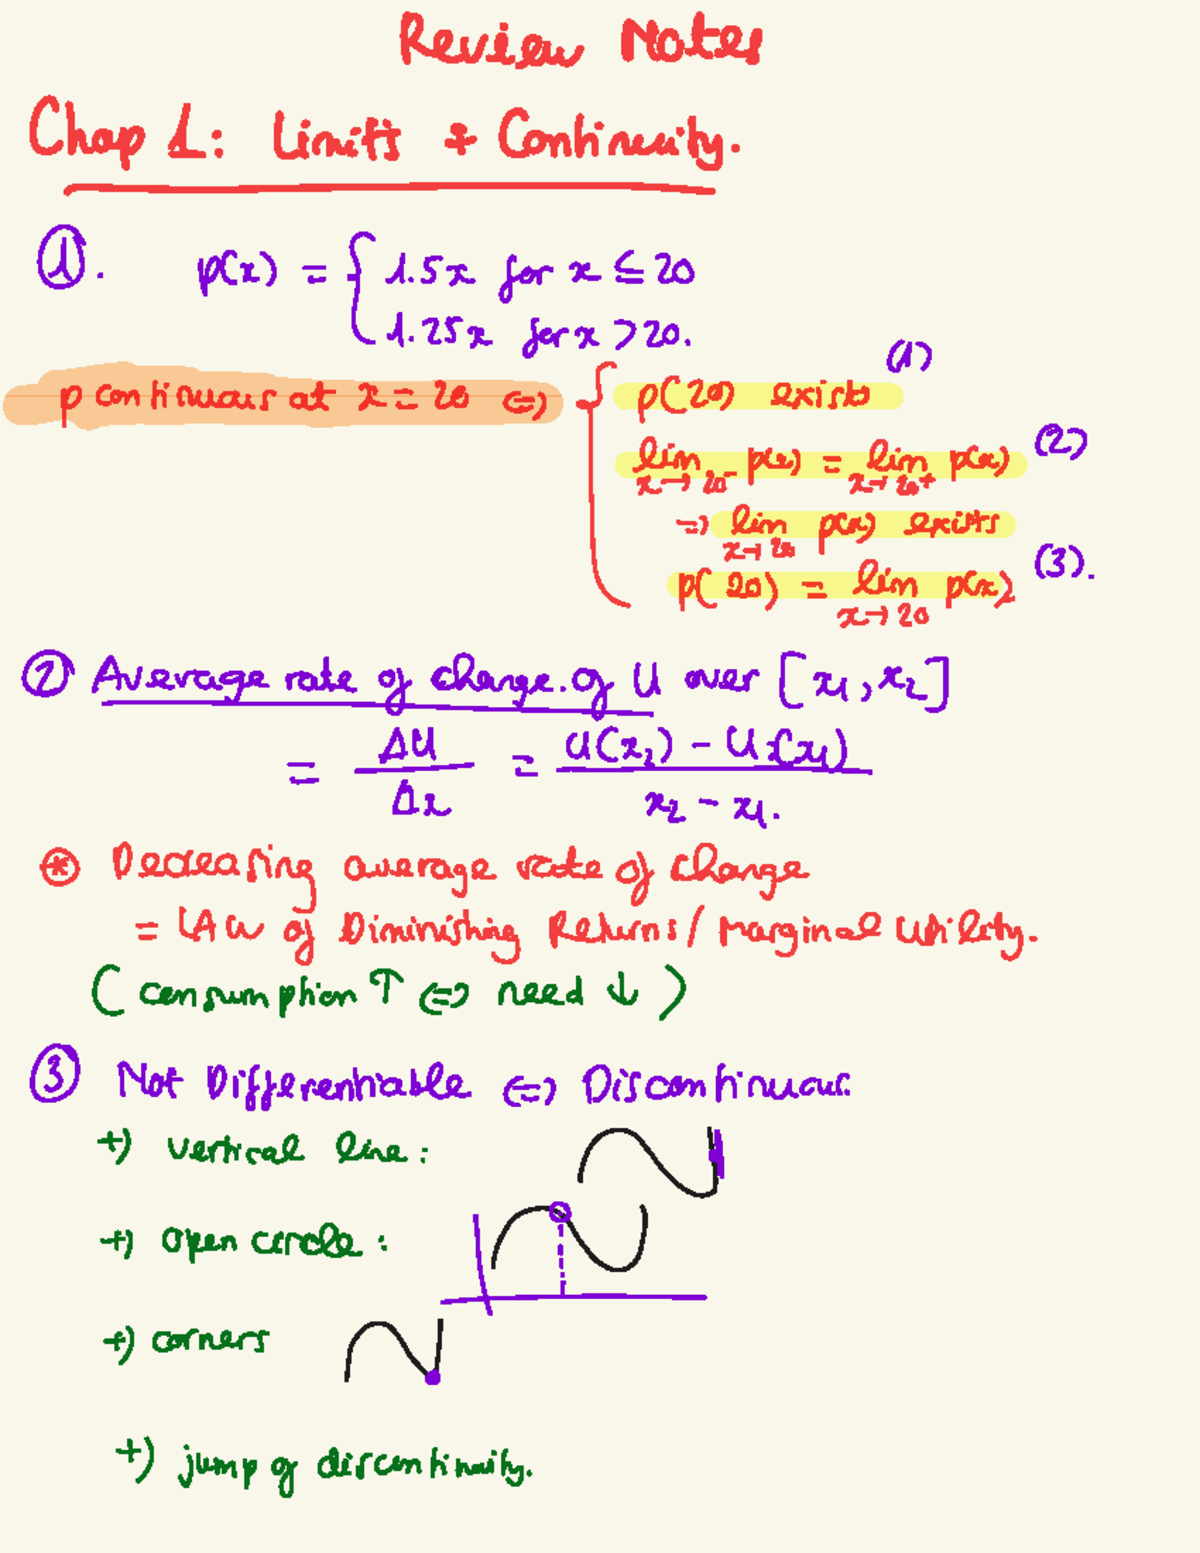 Review Notes
Chap 1: Limits + Continuity.
①. p(x) = { 1.5x for x ≤ 20
1.25x for x > 20.
p continuous at x = 20 <=> { p(20) exists (1)
lim x→20⁻ p(x) = lim x→20⁺ p(x) (2)
=> lim x→20 p(x) exists
p(20) = lim x→20 p(x) (3).
② Average rate of change of U over [x₁, x₂]
= ΔU/Δx = U(x₂) - U(x₁) / x₂ - x₁.
⊛ Decreasing average rate of change
= LAW of Diminishing Returns / Marginal Utility.
(consumption ↑ <=> need ↓)
③ Not Differentiable <=> Discontinuous.
+) vertical line:
+) open circle:
+) corners
+) jump of discontinuity.